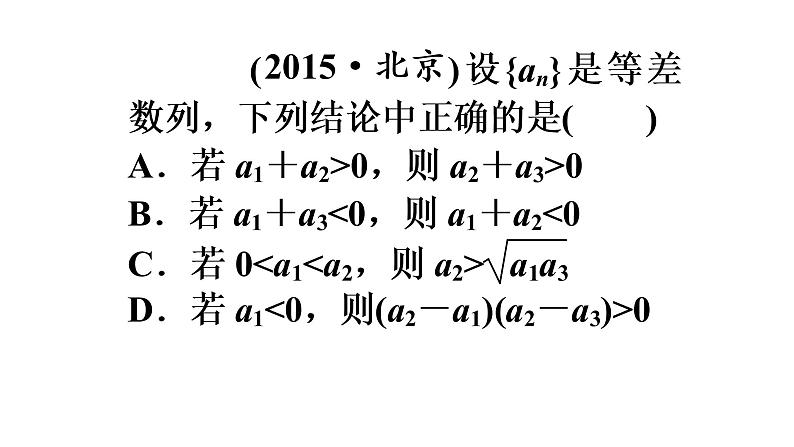 (2015·北京)设{aₙ}是等差
数列，下列结论中正确的是(　　)
A．若 a₁＋a₂>0，则 a₂＋a₃>0
B．若 a₁＋a₃<0，则 a₁＋a₂<0
C．若 0<a₁<a₂，则 a₂>√(a₁a₃)
D．若 a₁<0，则(a₂－a₁)(a₂－a₃)>0